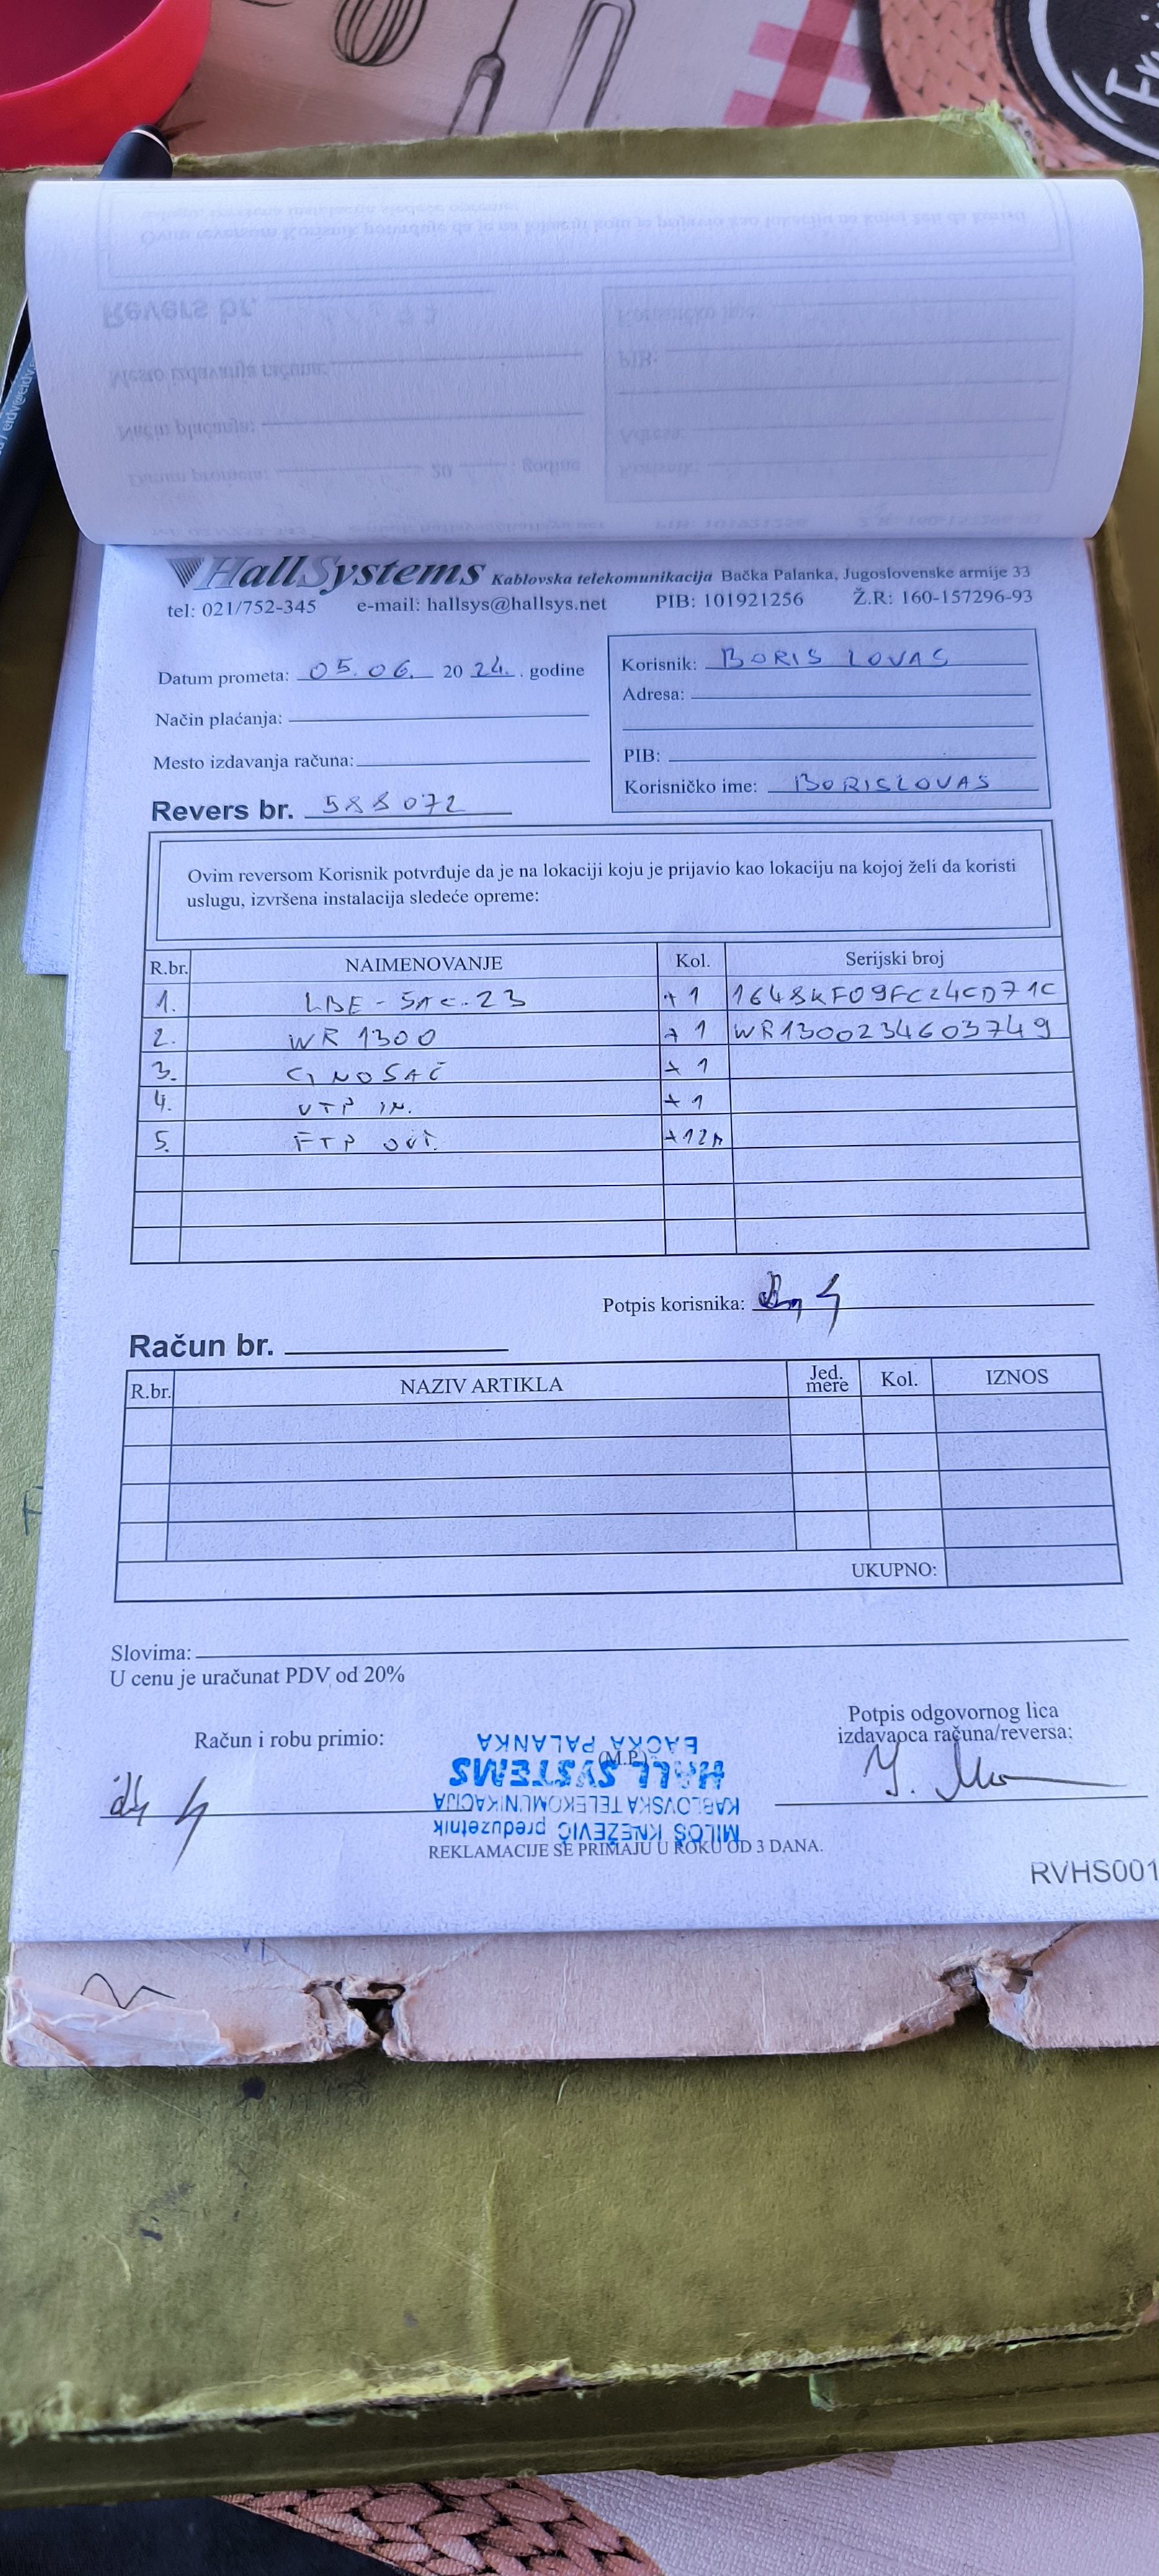 HallSystems Kablovska telekomunikacija Bačka Palanka, Jugoslovenske armije 33
tel: 021/752-345 e-mail: hallsys@hallsys.net PIB: 101921256 Ž.R: 160-157296-93
Datum prometa: 05.06. 20 24. . godine
Način plaćanja:
Mesto izdavanja računa:
Revers br. 588072
Korisnik: BORIS LOVAS
Adresa:
PIB:
Korisničko ime: BORISLOVAS
Ovim reversom Korisnik potvrđuje da je na lokaciji koju je prijavio kao lokaciju na kojoj želi da koristi
uslugu, izvršena instalacija sledeće opreme:
R.br. NAIMENOVANJE Kol. Serijski broj
1. LBE-5AC-23 +1 1648KF09FC24CD71C
2. WR 1300 +1 WR1300234603749
3. NOSAČ +1
4. UTP IN. +1
5. FTP OUT. +12m
Potpis korisnika:
Račun br.
R.br. NAZIV ARTIKLA Jed. mere Kol. IZNOS
UKUPNO:
Slovima:
U cenu je uračunat PDV od 20%
Račun i robu primio:
Potpis odgovornog lica
izdavaoca računa/reversa:
(M.P.)
MILOŠ KNEŽEVIĆ preduzetnik
KABLOVSKA TELEKOMUNIKACIJA
HALL SYSTEMS
BAČKA PALANKA
REKLAMACIJE SE PRIMAJU U ROKU OD 3 DANA.
RVHS001